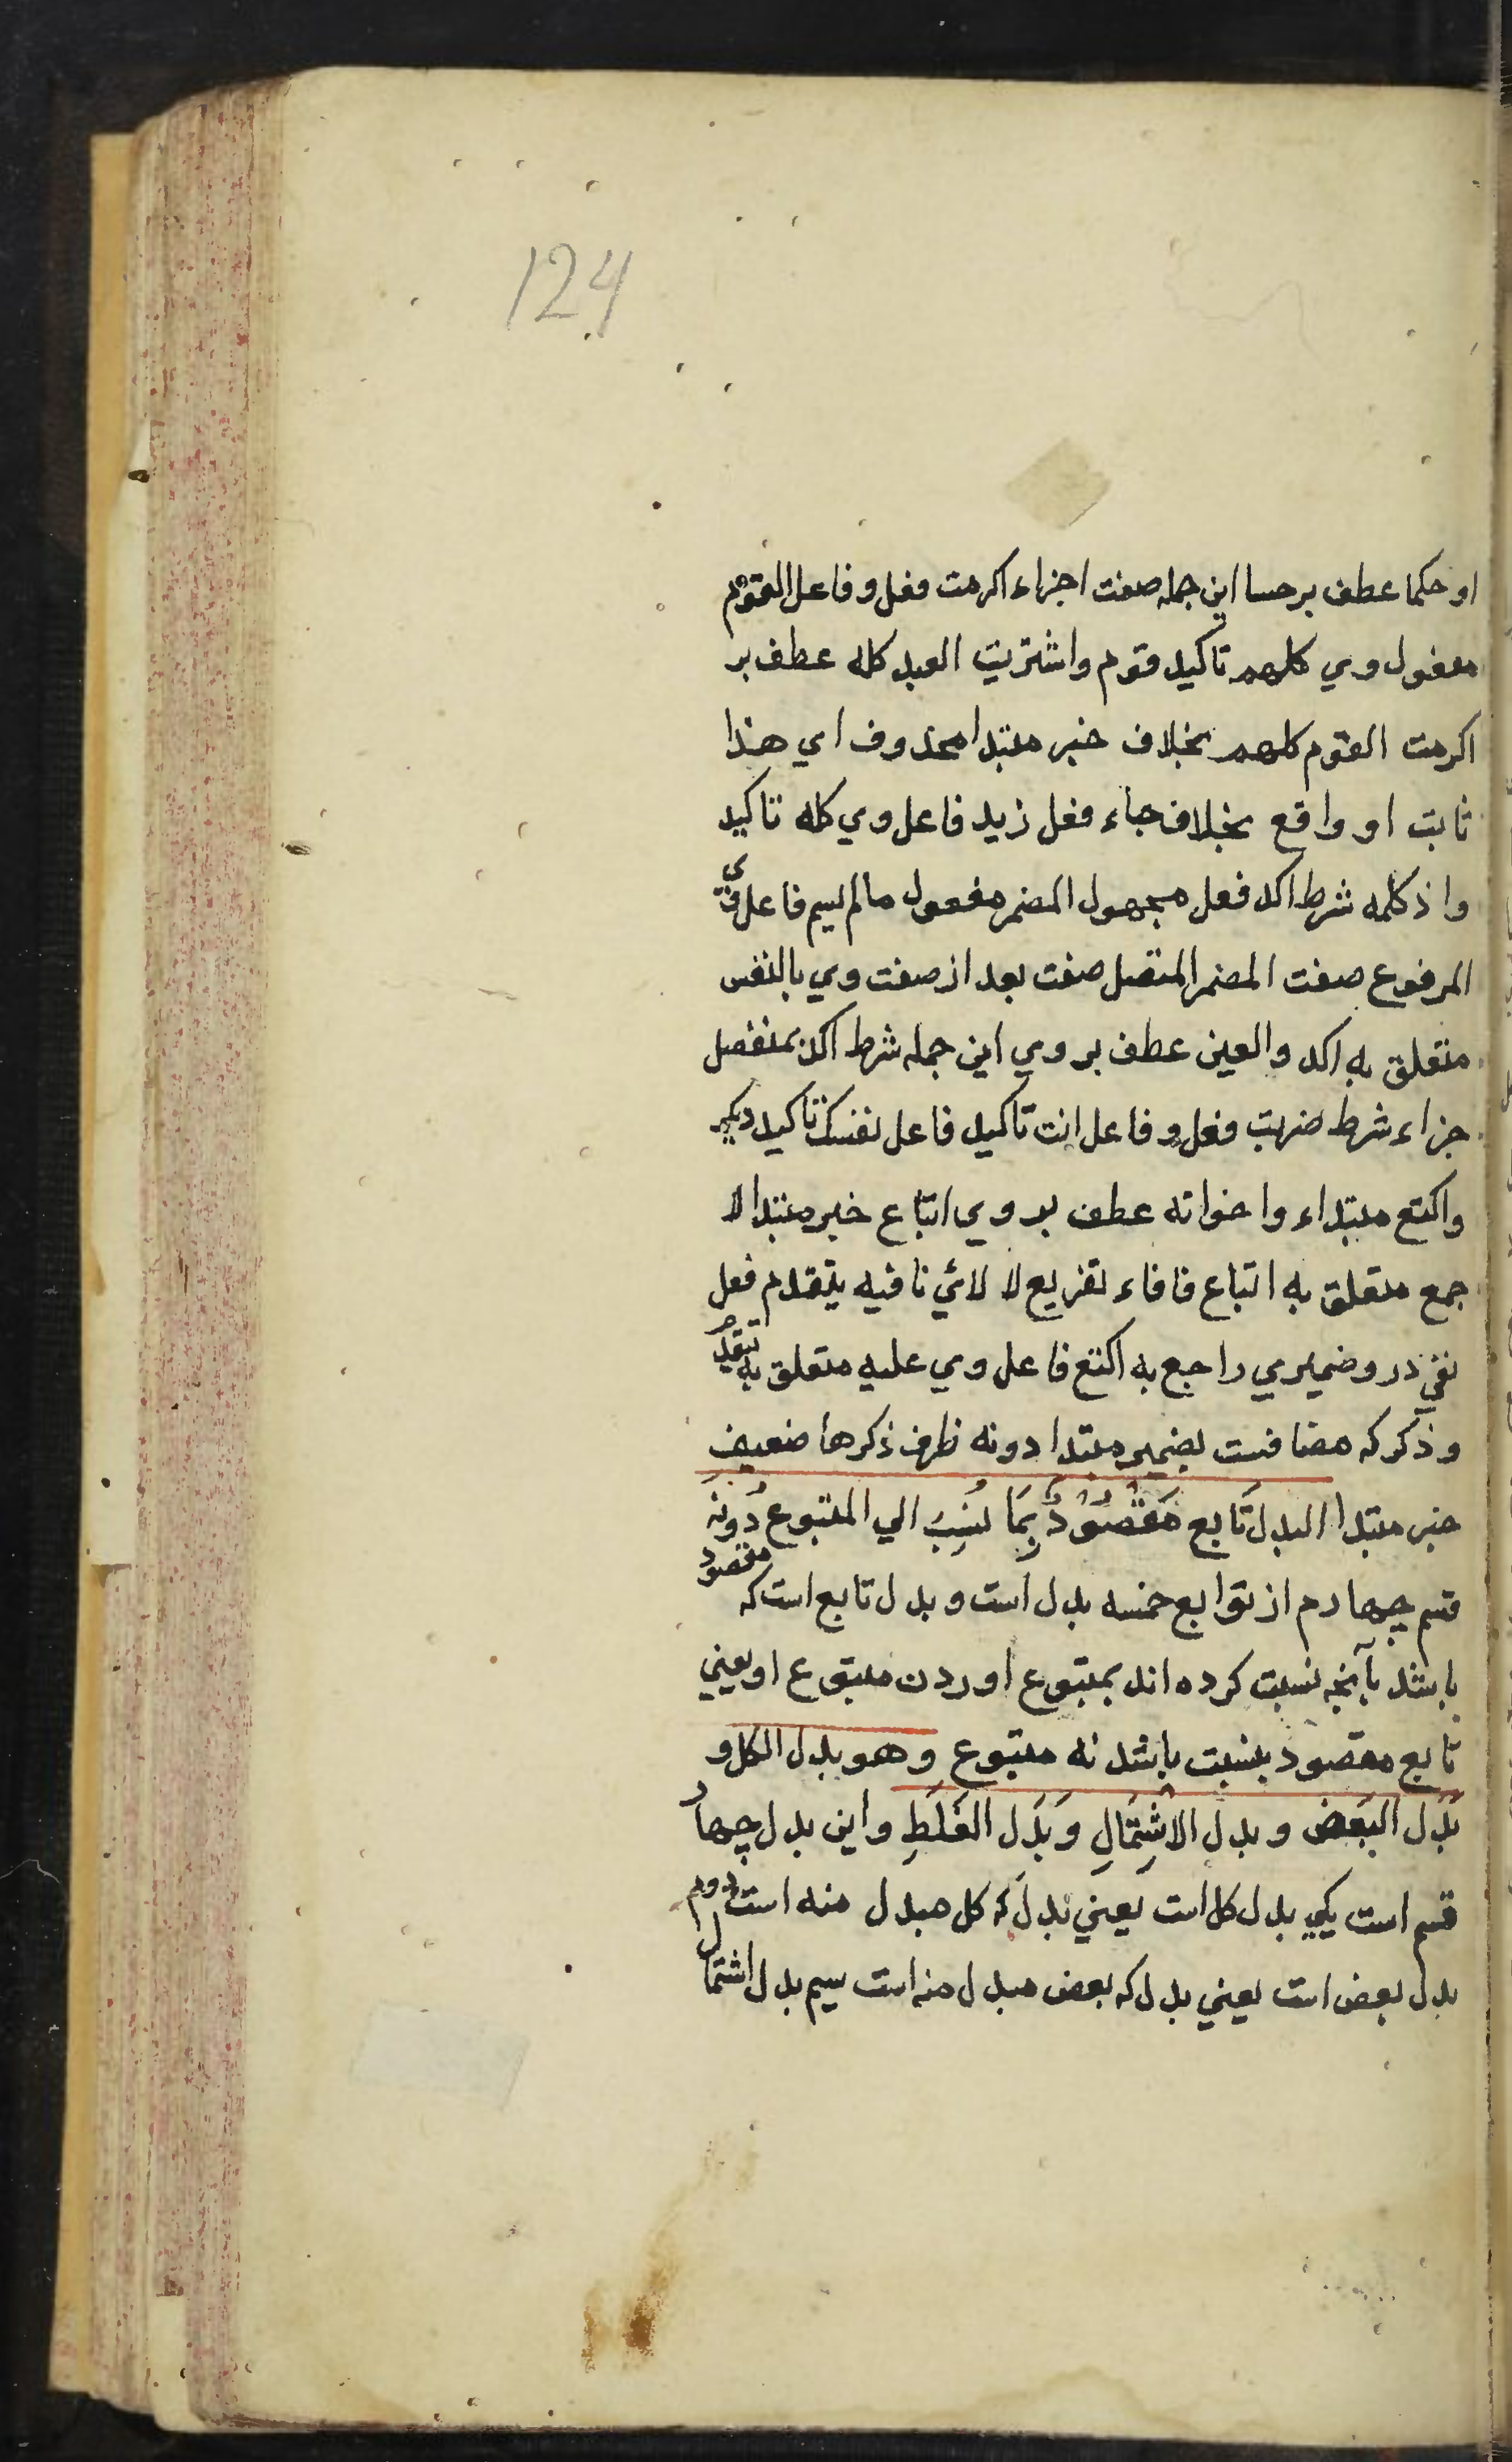 124
او حکما عطف بر حسا این جمله صفت اجزاء اکرمت فعل و فاعل القوم
مفعول وي کلهم تاکید قوم واشتریت العبد کله عطف بر
اکرمت القوم کلهم بخلاف خبر مبتدا محذوف اي هذا
ثابت او واقع بخلاف جاء فعل زید فاعل وي کله تاکید
واذ کلمه شرط اکد فعل مجهول المضمر مفعول مالم یسم فاعل وي
المرفوع صفت المضمر المتصل صفت بعد از صفت وي بالنفس
متعلق به اکد والعین عطف بر وي این جمله شرط اکد بمنفصل
جزاء شرط ضربت فعل و فاعل انت تاکید فاعل نفسک تاکید دیکر
واکتع مبتداء واخواته عطف بر وي اتباع خبر مبتدا لا
جمع متعلق به اتباع فا فاء تفریع لا لائي نافیه یتقدم فعل
نفي در و ضمیري راجع به اکتع فاعل وي علیه متعلق به تتقدم
و ذکر که مضافست بضمیر مبتدا دونه ظرف ذکرها ضعیف
خبر مبتدا البدل تَابع مَقْصُوْدٌ بِمَا نُسِبَ الي المتبوع دُونَه
قسم چهارم از توابع خمسه بدل است و بدل تابع است که مقصود
باشد بآنچه نسبت کرده اند بمتبوع او ردن متبوع او یعني
تابع مقصود بنسبت باشد نه متبوع وهو بدل الکل و
بَدَل البَعض و بدل الاشتِمَالِ وَ بَدَل الغَلَطِ و این بدل چهار
قسم است یکي بدل کل است یعني بدل که کل مبدل منه است دوم
بدل بعض است یعني بدل که بعض مبدل منه است سیم بدل اشتمال